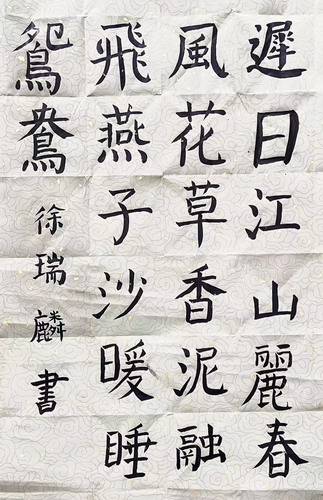 遲日江山麗春
風花草香泥融
飛燕子沙暖睡
鴛鴦
徐瑞麟書